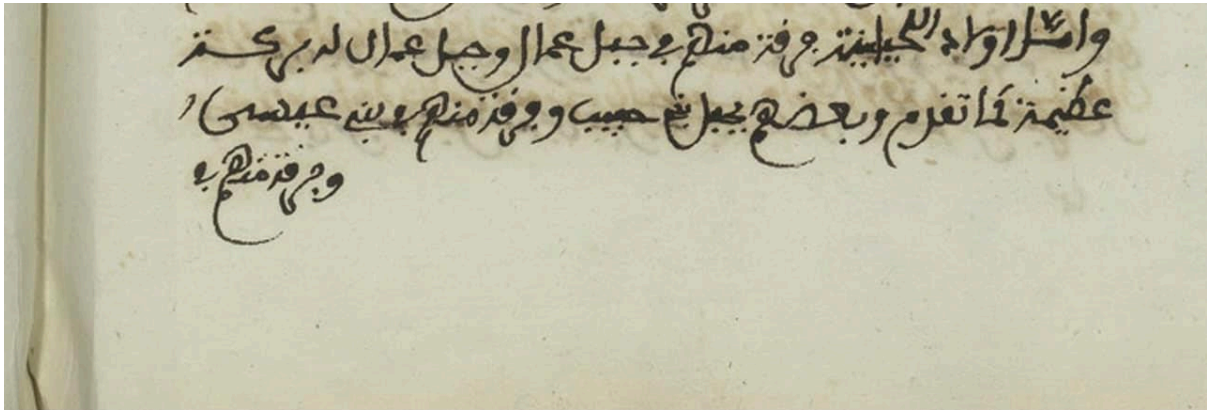 واما اولاد اللحيانية فرقة منهم في جبل عمال وجبل عمال له بركة
عظيمة كما تقدم وبعضهم بجبل بني حبيب وفرقة منهم في بني عيسى
وفرقة منهم في